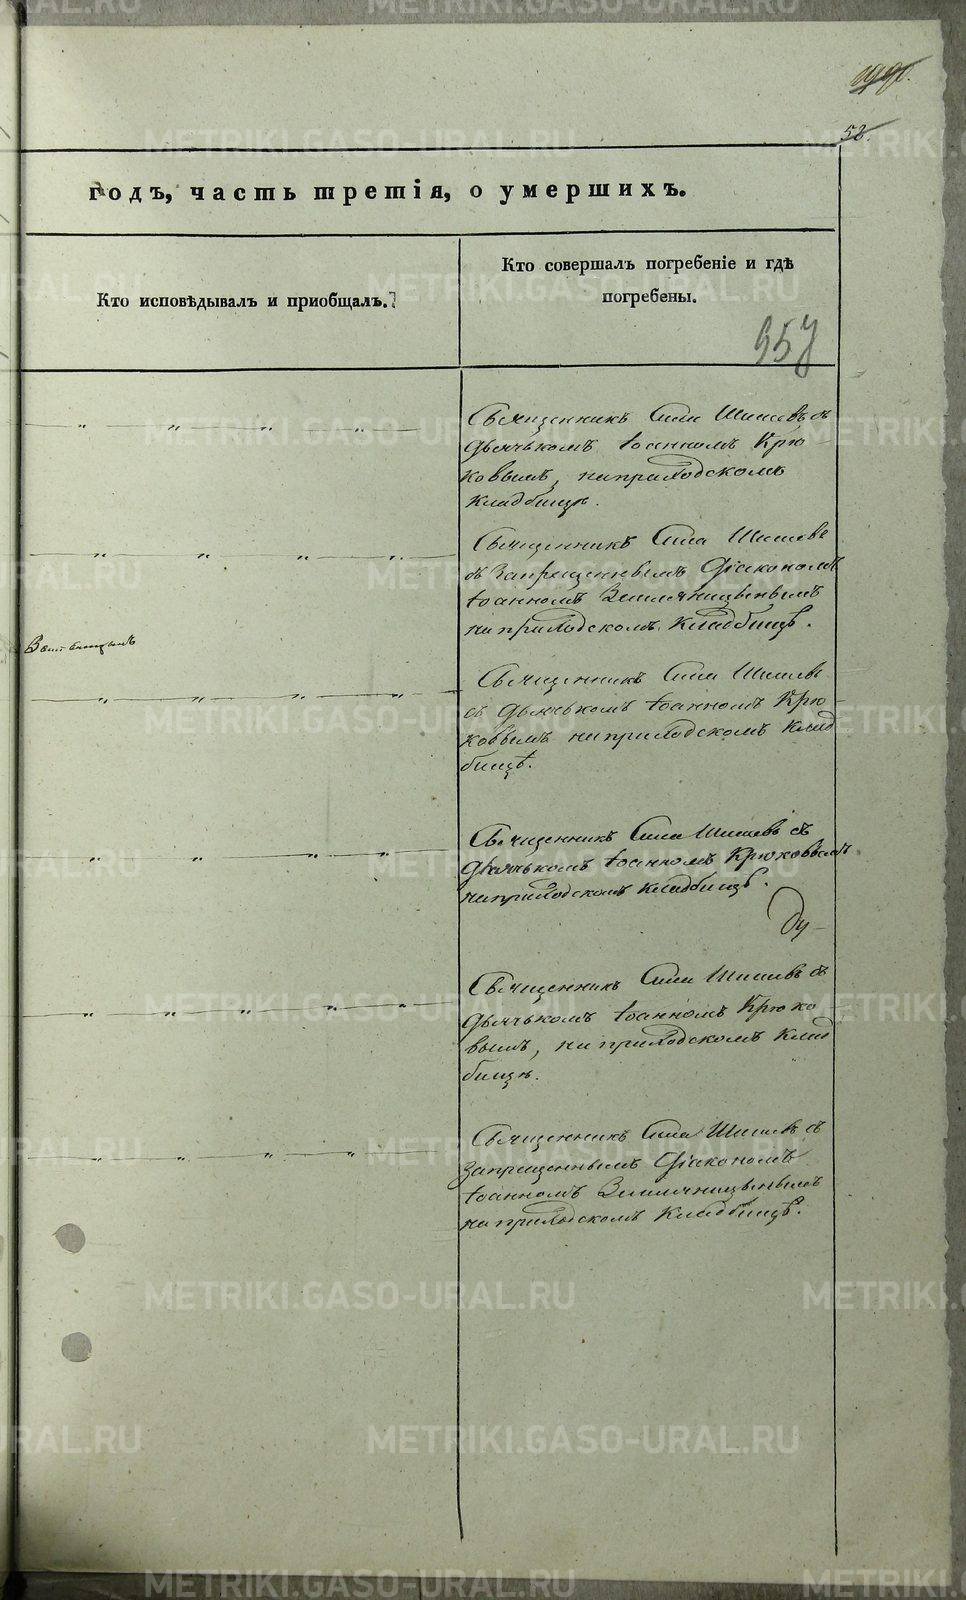 52.
годъ, часть третія, о умершихъ.
Кто исповѣдывалъ и приобщалъ.
Кто совершалъ погребеніе и гдѣ
погребены.
957
Священникъ Сила Шишевъ съ
дьячькомъ Іоанномъ Крю
ковымъ, на приходскомъ
кладбищѣ.
Священникъ Сила Шишевъ
съ Запрещеннымъ Діакономъ
Іоанномъ
на приходскомъ кладбищѣ.
Священникъ Сила Шишевъ
съ дьячькомъ Іоанномъ Крю
ковымъ на приходскомъ клад
бищѣ.
Священникъ Сила Шишевъ съ
дьячькомъ Іоанномъ Крюковымъ
на приходскомъ кладбищѣ.
Ду-
Священникъ Сила Шишевъ съ
дьячькомъ Іоанномъ Крюко
вымъ, на приходскомъ клад
бищѣ.
Священникъ Сила Шишевъ съ
Запрещеннымъ Діакономъ
Іоанномъ
на приходскомъ кладбищѣ.
METRIKI.GASO-URAL.RU